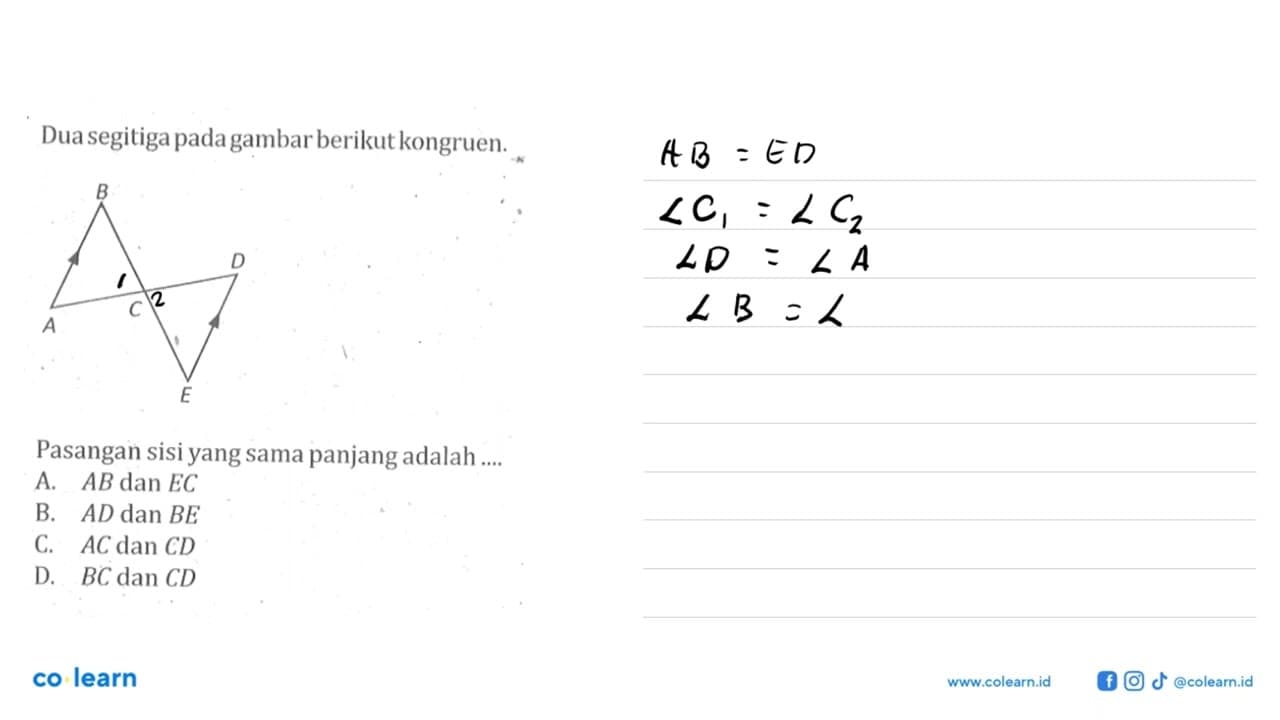 Dua segitiga pada gambar berikut kongruen.
B
D
1
C 2
A
E
Pasangan sisi yang sama panjang adalah ....
A. AB dan EC
B. AD dan BE
C. AC dan CD
D. BC dan CD
AB = ED
∠C₁ = ∠C₂
∠D = ∠A
∠B = ∠
co learn
www.colearn.id
@colearn.id